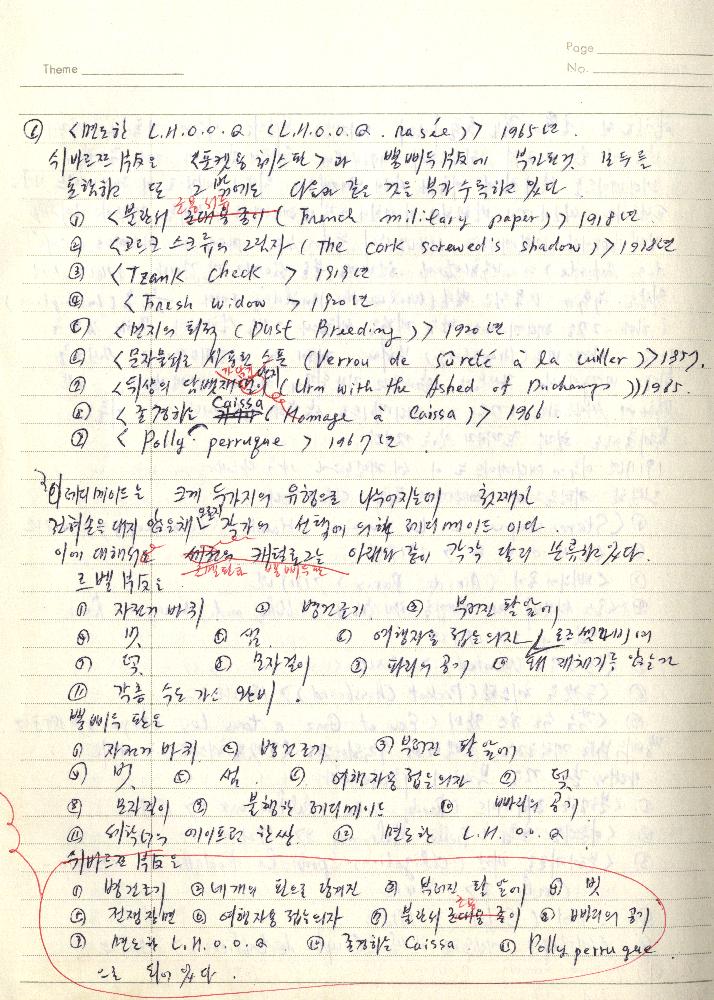 Page
Theme
No.
⑥ <면도한 L.H.O.O.Q (L.H.O.O.Q. rasée)> 1965년.
쉬바르쯔 목록은 <포켓용 체스판>과 뺄삐두 목록에 부가된것 모두를
포함하고 또 그 밖에도 다음과 같은 것을 부가수록하고 있다.
군용 서류
① <불란서 군대용 종이 (French military paper)> 1918년
② <코르크 스크류의 그림자 (The cork screwed's shadow)> 1918년
③ <Tzank check > 1919년
④ < Fresh widow > 1920년
⑤ <먼지의 퇴적 (Dust Breeding)> 1920년
⑥ (Verrou de sûreté à la cuiller)> 1957.
⑦ (Urn with the Ashed of Duchamp)) 1965.
Caissa
⑧ <존경하는 (Homage à Caissa)> 1966
⑨ < Polly perruque > 1967년.
레디메이드는 크게 두가지의 유형으로 나누어지는데 첫째가
전혀손을 대지 않은채 작가의 선택에 의해 레디메이드 이다.
이에 대해서 카탈로그는 아래와 같이 각각 달리 분류하고 있다.
르벨 목록은
① 자전거 바퀴 ② 병건조기 ③ 부러진 팔 앞에
④ 빗 ⑤ 쉼 ⑥ 여행자용 접는의자 ✓ 로즈 쎌라비여
⑦ 덫 ⑧ 모자걸이 ⑨ 파리의 공기 ⑩ 왜 재채기를 않는가
⑪ 각층 수도 가스 완비.
뺄삐두 판은
① 자전거 바퀴 ② 병건조기 ③ 부러진 팔 앞에
④ 빗 ⑤ 쉼 ⑥ 여행자용 접는의자 ⑦ 덫
⑧ 모자걸이 ⑨ 불행한 레디메이드 ⑩ 빠리의 공기
⑪ 세탁녀의 에이프런 한쌍 ⑫ 면도한 L.H.O.O.Q
쉬바르쯔 목록은
① 병건조기 ② 네개의 핀으로 당겨진 ③ 부러진 팔 앞에 ④ 빗
군용
⑤ 전쟁장면 ⑥ 여행자용 접는의자 ⑦ 불란서 군대용 종이 ⑧ 빠리의 공기
⑨ 면도한 L.H.O.O.Q ⑩ 존경하는 Caissa ⑪ Polly perruque
으로 되어 있다.